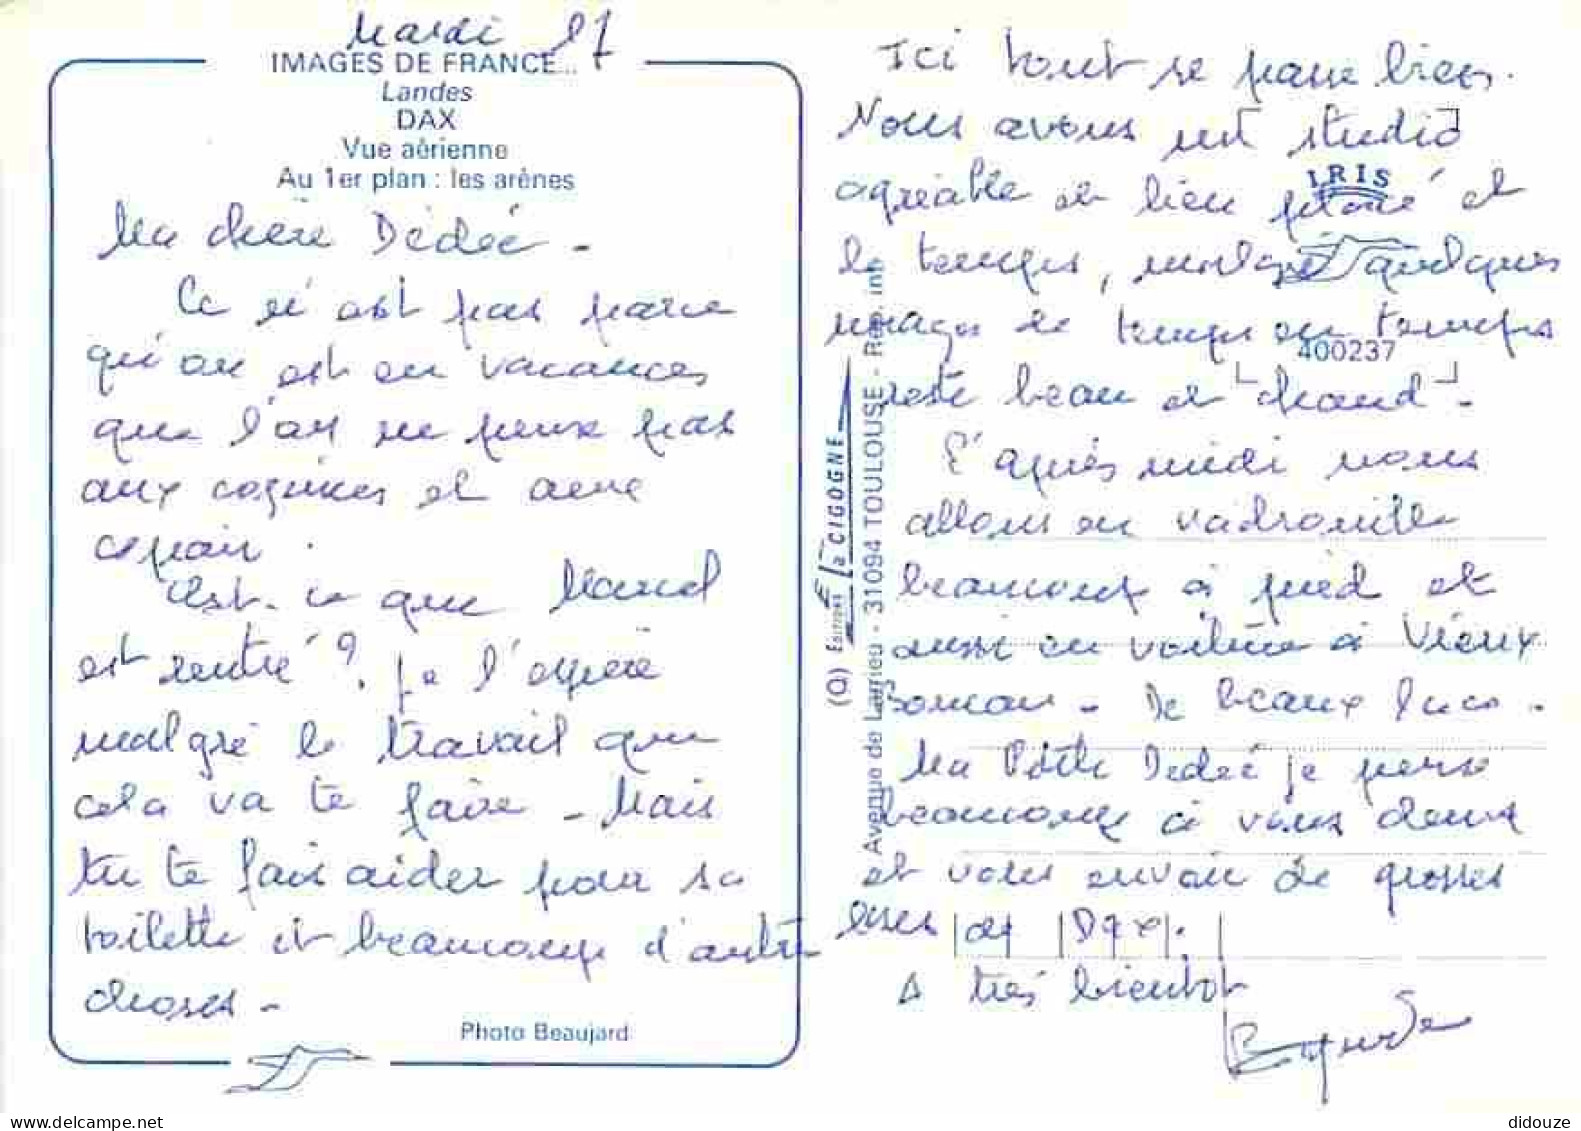 Mardi 17
IMAGES DE FRANCE...
Landes
DAX
Vue aérienne
Au 1er plan : les arènes
Ma chère Dédée -
Ce n'est pas parce
qu'on est en vacances
que l'on ne pense pas
aux copines et aux
copain.
Est-ce que Marcel
est rentré ? Je l'espère
malgré le travail que
cela va te faire - Mais
tu te fais aider pour sa
toilette et beaucoup d'autre
choses -
Photo Beaujard
Ici tout se passe bien.
Nous avons un studio
agréable et bien placé et
le temps, malgré quelques
nuages de temps en temps
reste beau et chaud -
L'après midi nous
allons en vadrouille
beaucoup à pied et
aussi en voiture à Vieux
Boucau - De beaux lacs -
Ma Petite Dédée je pense
beaucoup à vous deux
et vous envoie de grosses
bises de Dax.
A très bientot
IRIS
400237
(O) Editions La CIGOGNE
Avenue de Larrieu - 31094 TOULOUSE - Rep. int.
didouze